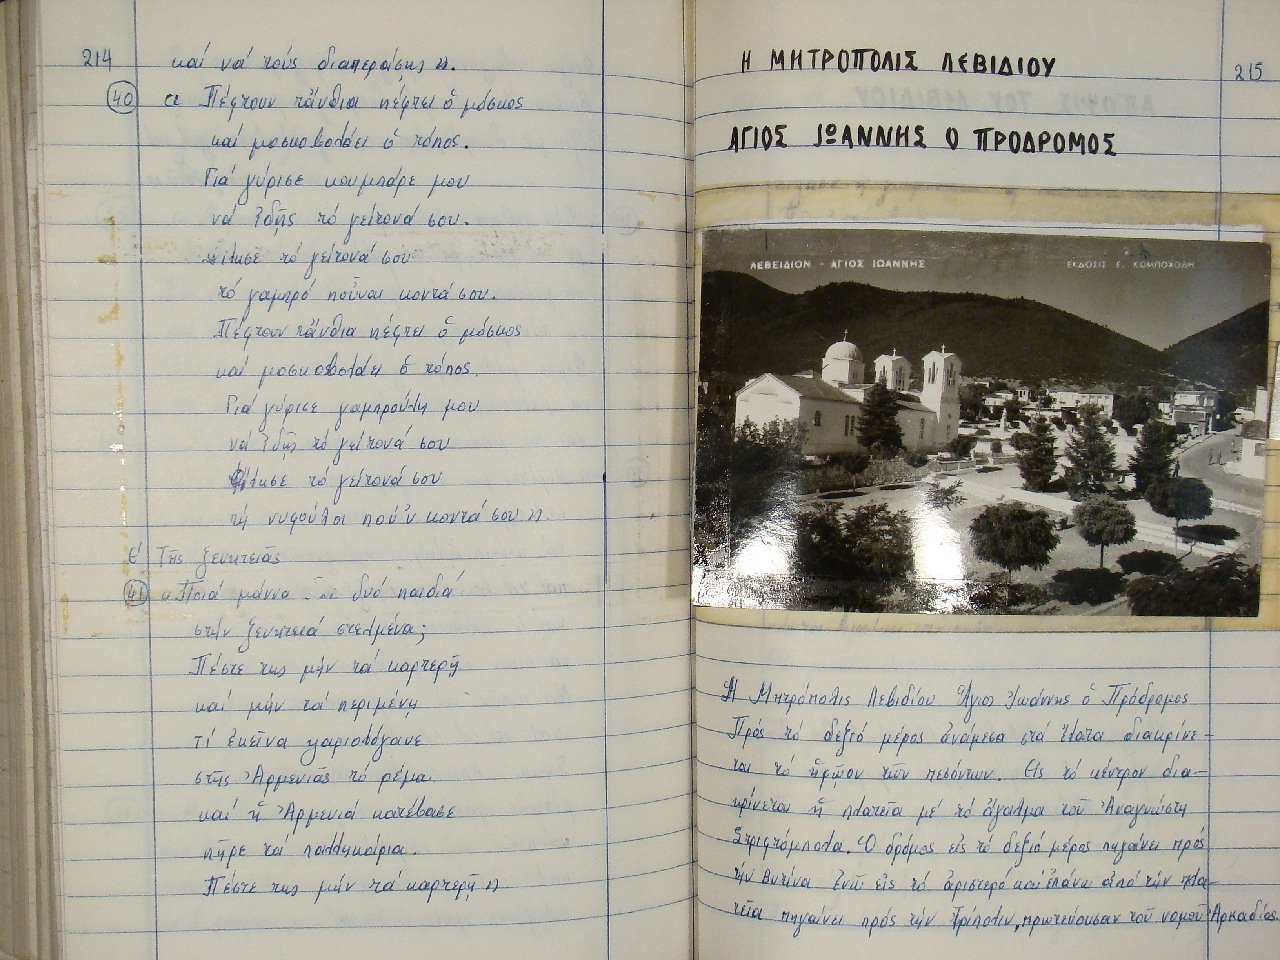 214
καί νά τούς διαπεράσης ».
40 « Πέφτουν τἄνθια πέφτει ὁ μόσκος
καί μοσκοβολάει ὁ τόπος.
Γιά γύρισε κουμπάρε μου
νά ἰδῆς τό γείτονά σου.
τό γείτονά σου
τό γαμπρό ποὖναι κοντά σου.
Πέφτουν τἄνθια πέφτει ὁ μόσκος
καί μοσκοβολάει ὁ τόπος.
Γιά γύρισε γαμπρούλη μου
νά ἰδῆς τό γείτονά σου
τό γείτονά σου
τή νυφούλα ποὖν κοντά σου ».
ε΄. Τῆς ξενητειᾶς
41 « Ποιά μάννα δυό παιδιά
στήν ξενητειά στελμένα;
Πέστε της μήν τά καρτερῆ
καί μήν τά περιμένη
τί ἐκεῖνα
στῆς Ἀρμενιᾶς τό ρέμα.
καί ἡ Ἀρμενιά κατέβασε
πῆρε τά παλληκάρια.
Πέστε της μήν τά καρτερῆ »
Η ΜΗΤΡΟΠΟΛΙΣ ΛΕΒΙΔΙΟΥ
215
ΑΓΙΟΣ ΙΩΑΝΝΗΣ Ο ΠΡΟΔΡΟΜΟΣ
ΛΕΒΕΙΔΙΟΝ - ΑΓΙΟΣ ΙΩΑΝΝΗΣ
ΕΚΔΟΣΙΣ
Ἡ Μητρόπολις Λεβιδίου Ἅγιος Ἰωάννης ὁ Πρόδρομος
Πρός τό δεξιό μέρος ἀνάμεσα στά ἔλατα διακρίνε-
ται τό ἡρῶον τῶν πεσόντων. Εἰς τό κέντρον δια-
κρίνεται ἡ πλατεῖα μέ τό ἄγαλμα τοῦ Ἀναγνώστη
Στριφτόμπολα. Ὁ δρόμος εἰς τό δεξιό μέρος πηγαίνει πρός
τήν Βυτίνα ἐνῶ εἰς τό ἀριστερό καί ἐπάνω ἀπό τήν πλα-
τεῖα πηγαίνει πρός τήν Τρίπολιν, πρωτεύουσαν τοῦ νομοῦ Ἀρκαδίας.